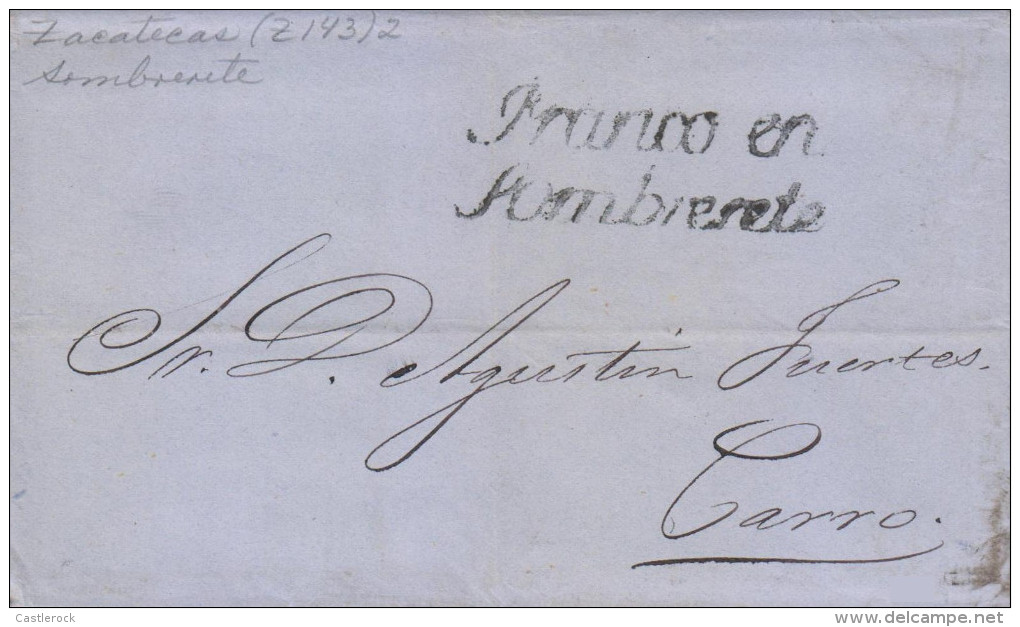 Zacatecas (Z143)2
Sombrerete
Franco en
Sombrerete
Sr. D. Agustin Fuertes.
Carro.
Castlerock
delcampe.net